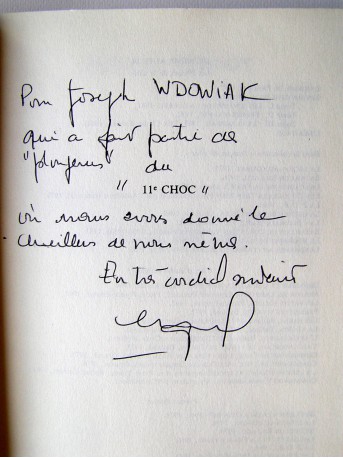 Pour Joseph WDOWIAK
qui a fait partie des
"plongeurs" du
" 11e CHOC "
où nous avons donné le
meilleur de nous même.
En très cordial souvenir